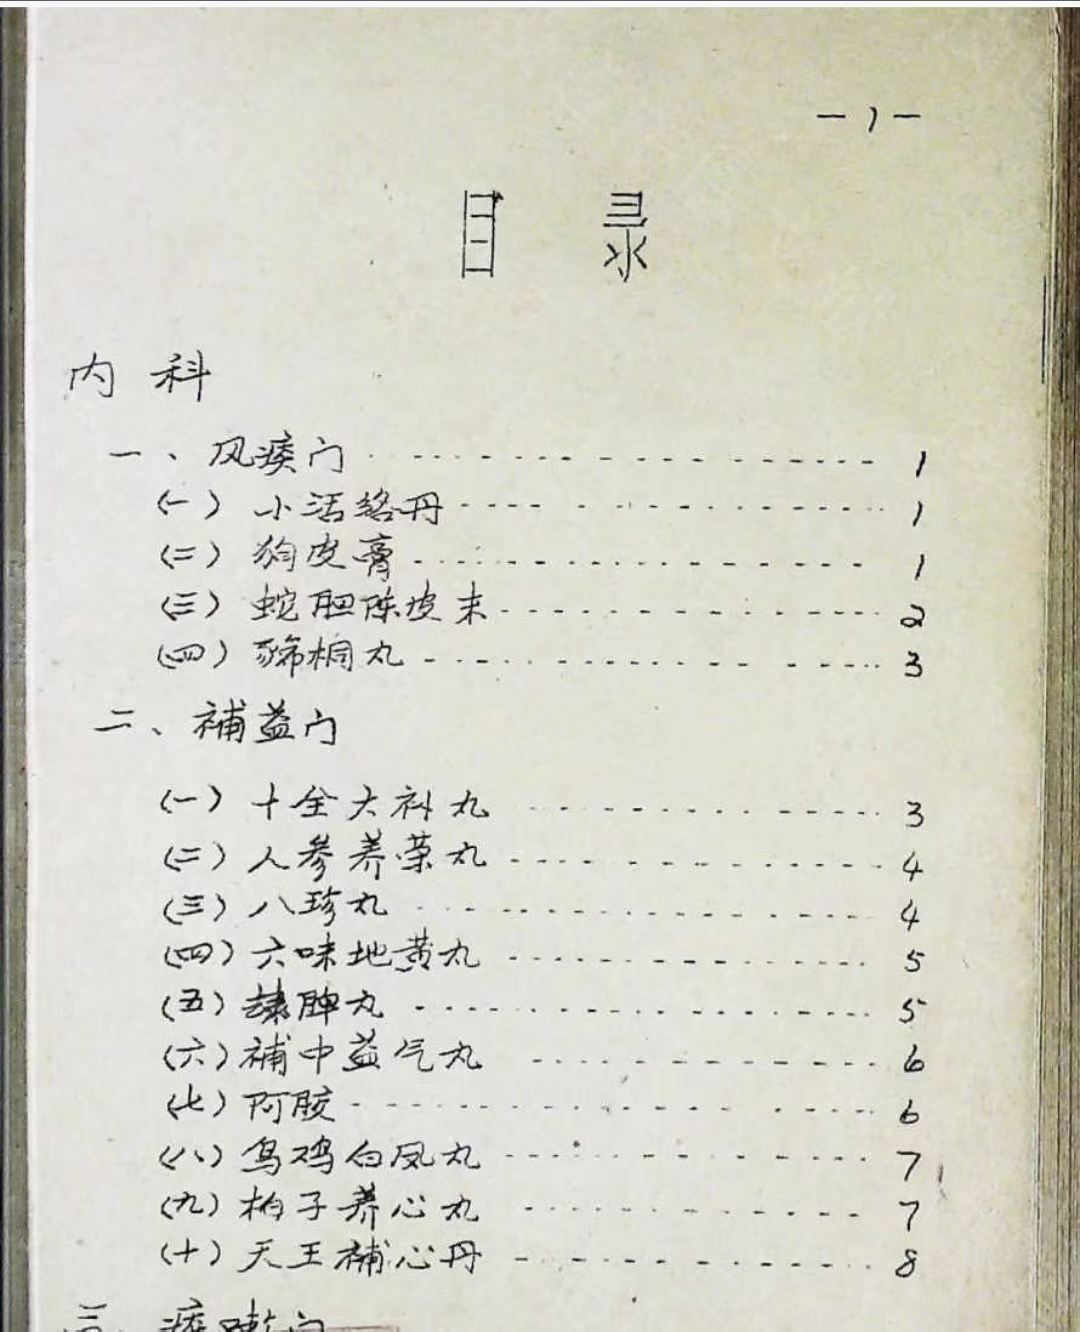 —1—
目 录
内 科
一、风痰门 ------------ 1
(一) 小活絡丹 ------------ 1
(二) 狗皮膏 ------------ 1
(三) 蛇胆陈皮末 ------------ 2
(四) 豨桐丸 ------------ 3
二、補益门
(一) 十全大补丸 ------------ 3
(二) 人参养荣丸 ------------ 4
(三) 八珍丸 ------------ 4
(四) 六味地黄丸 ------------ 5
(五) 脾丸 ------------ 5
(六) 補中益气丸 ------------ 6
(七) 阿胶 ------------ 6
(八) 乌鸡白凤丸 ------------ 7
(九) 柏子养心丸 ------------ 7
(十) 天王補心丹 ------------ 8
三、痰嗽门